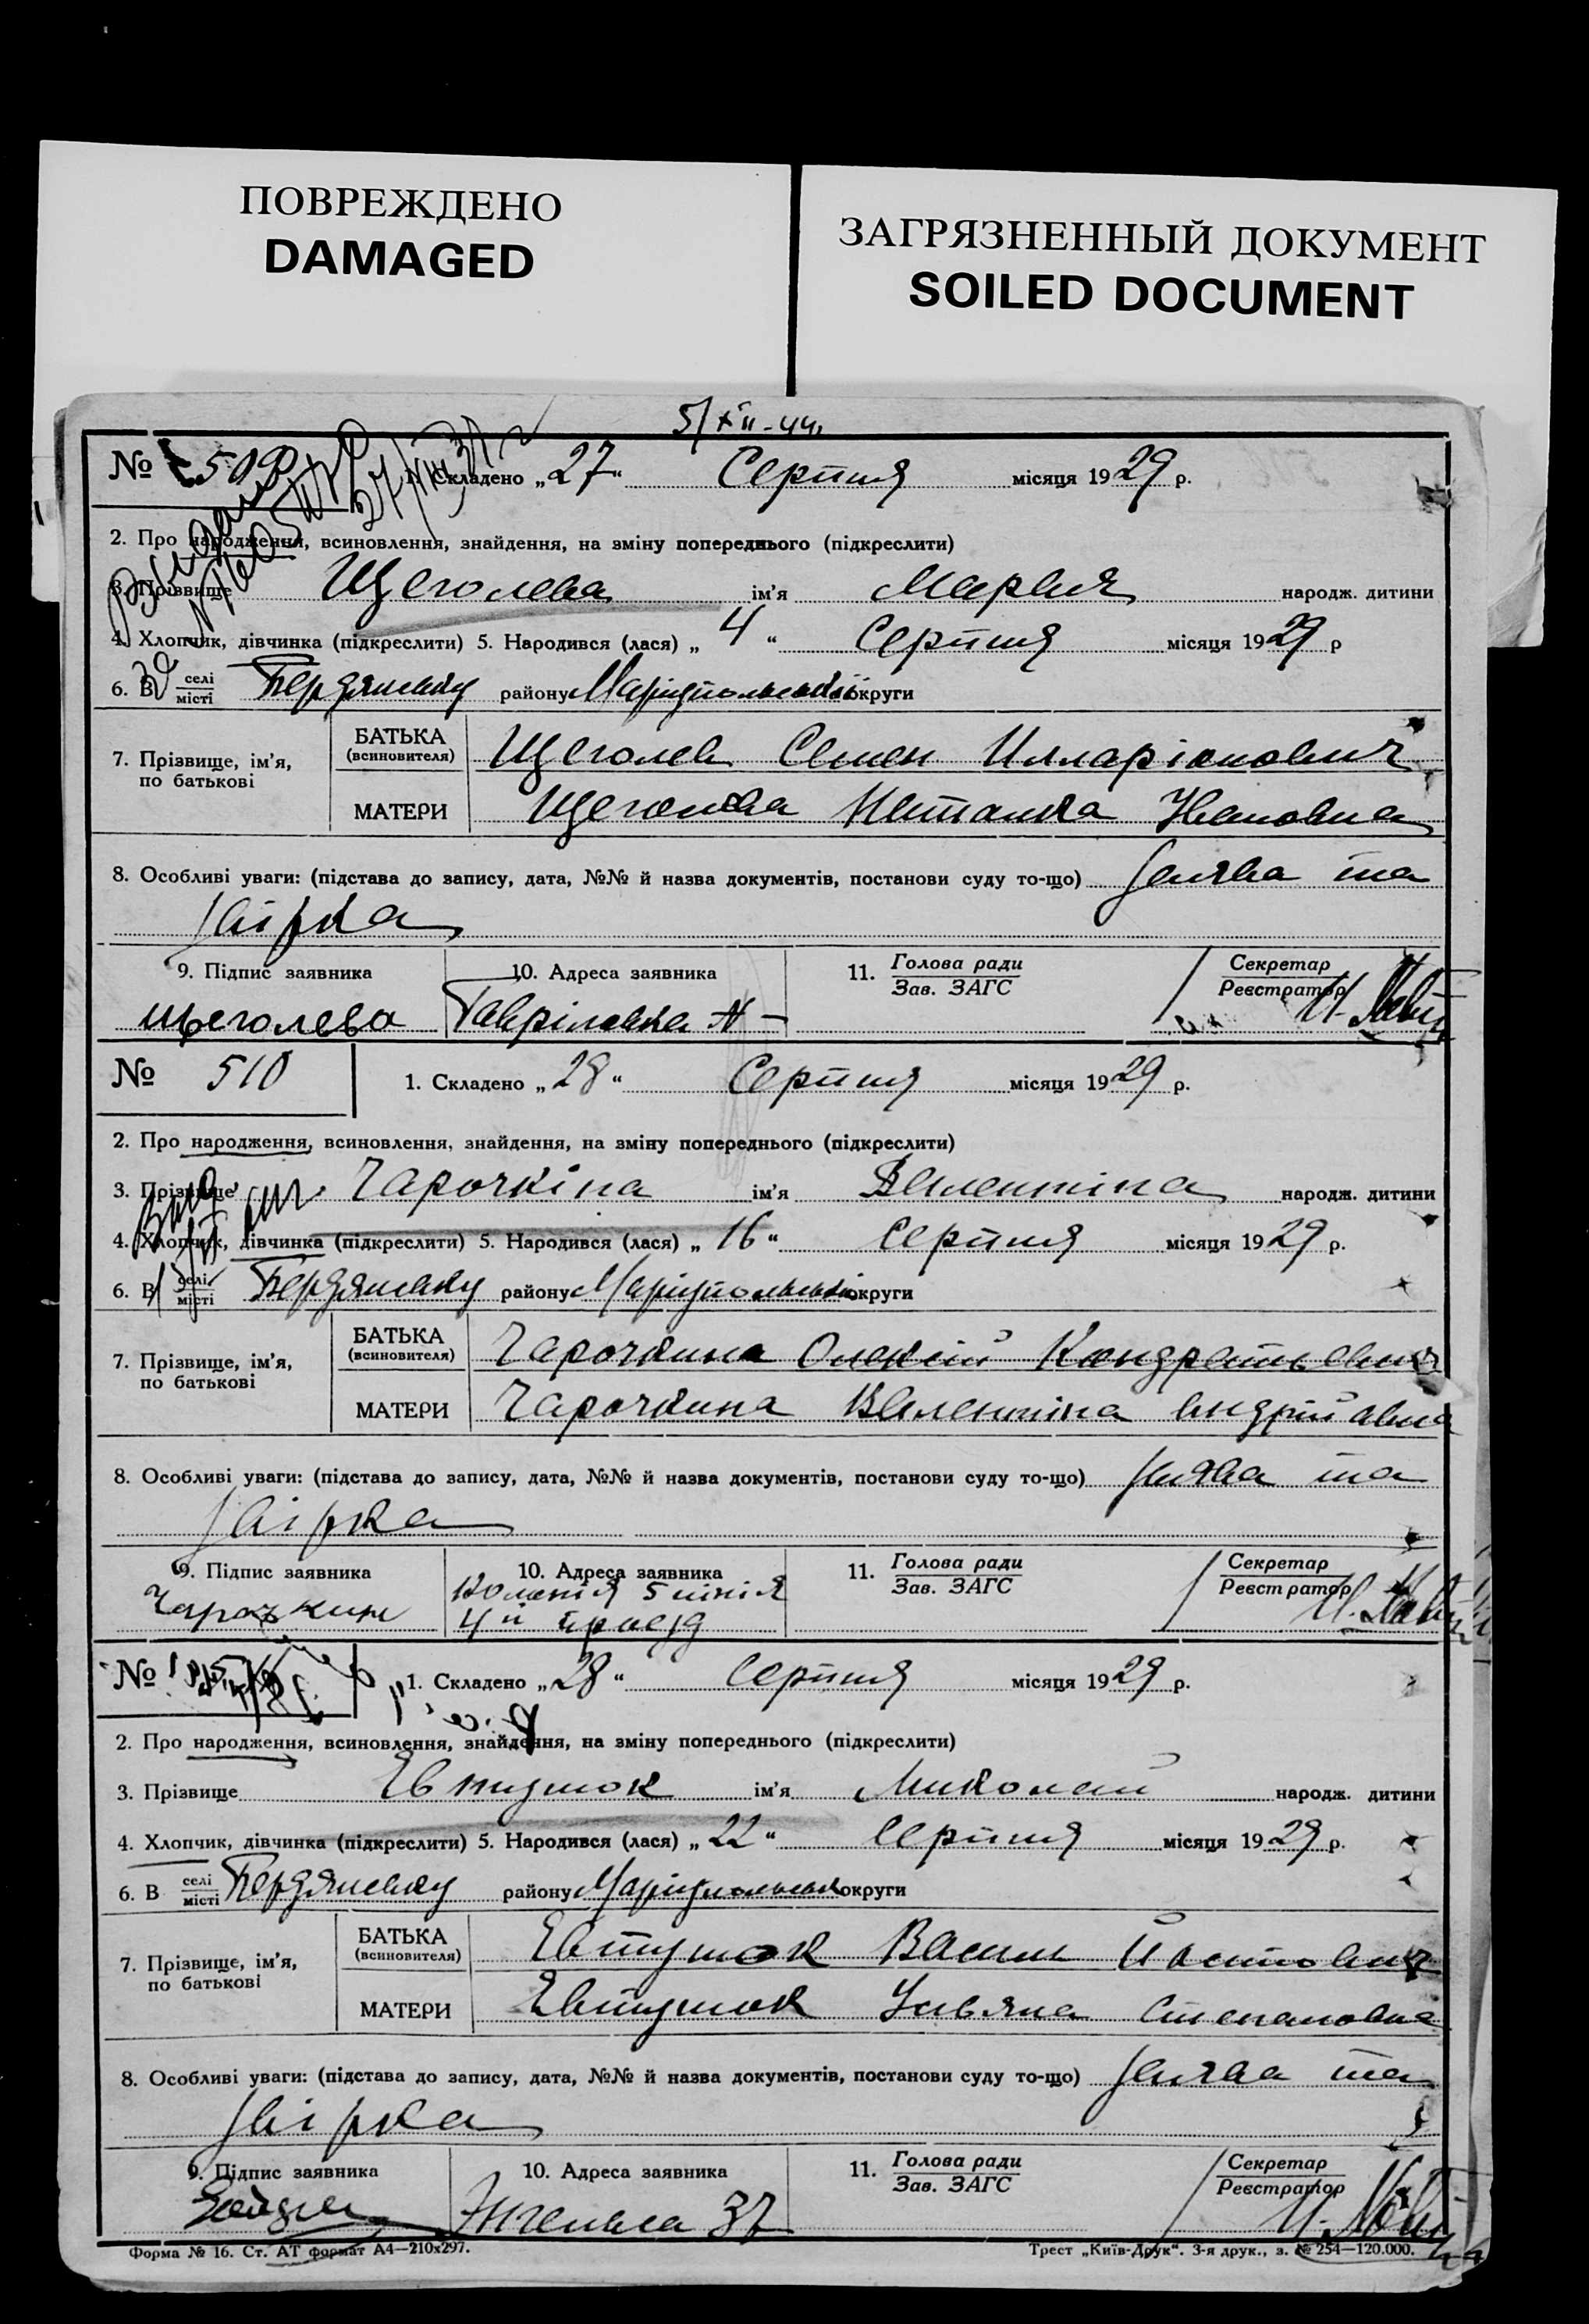 ПОВРЕЖДЕНО
DAMAGED
ЗАГРЯЗНЕННЫЙ ДОКУМЕНТ
SOILED DOCUMENT
5/XII-44
№ 509 1. Складено „27“ Серпня місяця 1929 р.
2. Про народження, всиновлення, знайдення, на зміну попереднього (підкреслити)
3. Прізвище Щеголева ім'я Марія народж. дитини
4. Хлопчик, дівчинка (підкреслити) 5. Народився (лася) „4“ Серпня місяця 1929 р
6. В селі місті Бердянську району Маріупольської округи
7. Прізвище, ім'я, по батькові
БАТЬКА (всиновителя) Щеголев Семен Илларіонович
МАТЕРИ Щеголева Наталка Ивановна
8. Особливі уваги: (підстава до запису, дата, №№ й назва документів, постанови суду то-що) Заява та
звірка
9. Підпис заявника 10. Адреса заявника 11. Голова ради Зав. ЗАГС Секретар Реєстратор
щеголева Гавріловка №—
№ 510 1. Складено „28“ Серпня місяця 1929 р.
2. Про народження, всиновлення, знайдення, на зміну попереднього (підкреслити)
3. Прізвище Чарочкіна ім'я Валентіна народж. дитини
4. Хлопчик, дівчинка (підкреслити) 5. Народився (лася) „16“ Серпня місяця 1929 р.
6. В селі місті Бердянську району Маріупольськ. округи
7. Прізвище, ім'я, по батькові
БАТЬКА (всиновителя) Чарочкина Олексій Кондратьевич
МАТЕРИ Чарочкина Валентіна Андрійовна
8. Особливі уваги: (підстава до запису, дата, №№ й назва документів, постанови суду то-що) Заява та
звірка
9. Підпис заявника 10. Адреса заявника 11. Голова ради Зав. ЗАГС Секретар Реєстратор
Чарочкин Колонія 5 лінія
4й проезд
№ 1. Складено „28“ Серпня місяця 1929 р.
2. Про народження, всиновлення, знайдення, на зміну попереднього (підкреслити)
3. Прізвище Евтушок ім'я Миколай народж. дитини
4. Хлопчик, дівчинка (підкреслити) 5. Народився (лася) „22“ Серпня місяця 1929 р.
6. В селі місті Бердянську району Маріупольськ округи
7. Прізвище, ім'я, по батькові
БАТЬКА (всиновителя) Евтушок Василь
МАТЕРИ Евтушок Ульяна Степановна
8. Особливі уваги: (підстава до запису, дата, №№ й назва документів, постанови суду то-що) Заява та
звірка
9. Підпис заявника 10. Адреса заявника 11. Голова ради Зав. ЗАГС Секретар Реєстратор
Энгельса 37
Форма № 16. Ст. АТ формат А4—210х297. Трест „Київ-Друк“. 3-я друк., з. № 254—120.000.